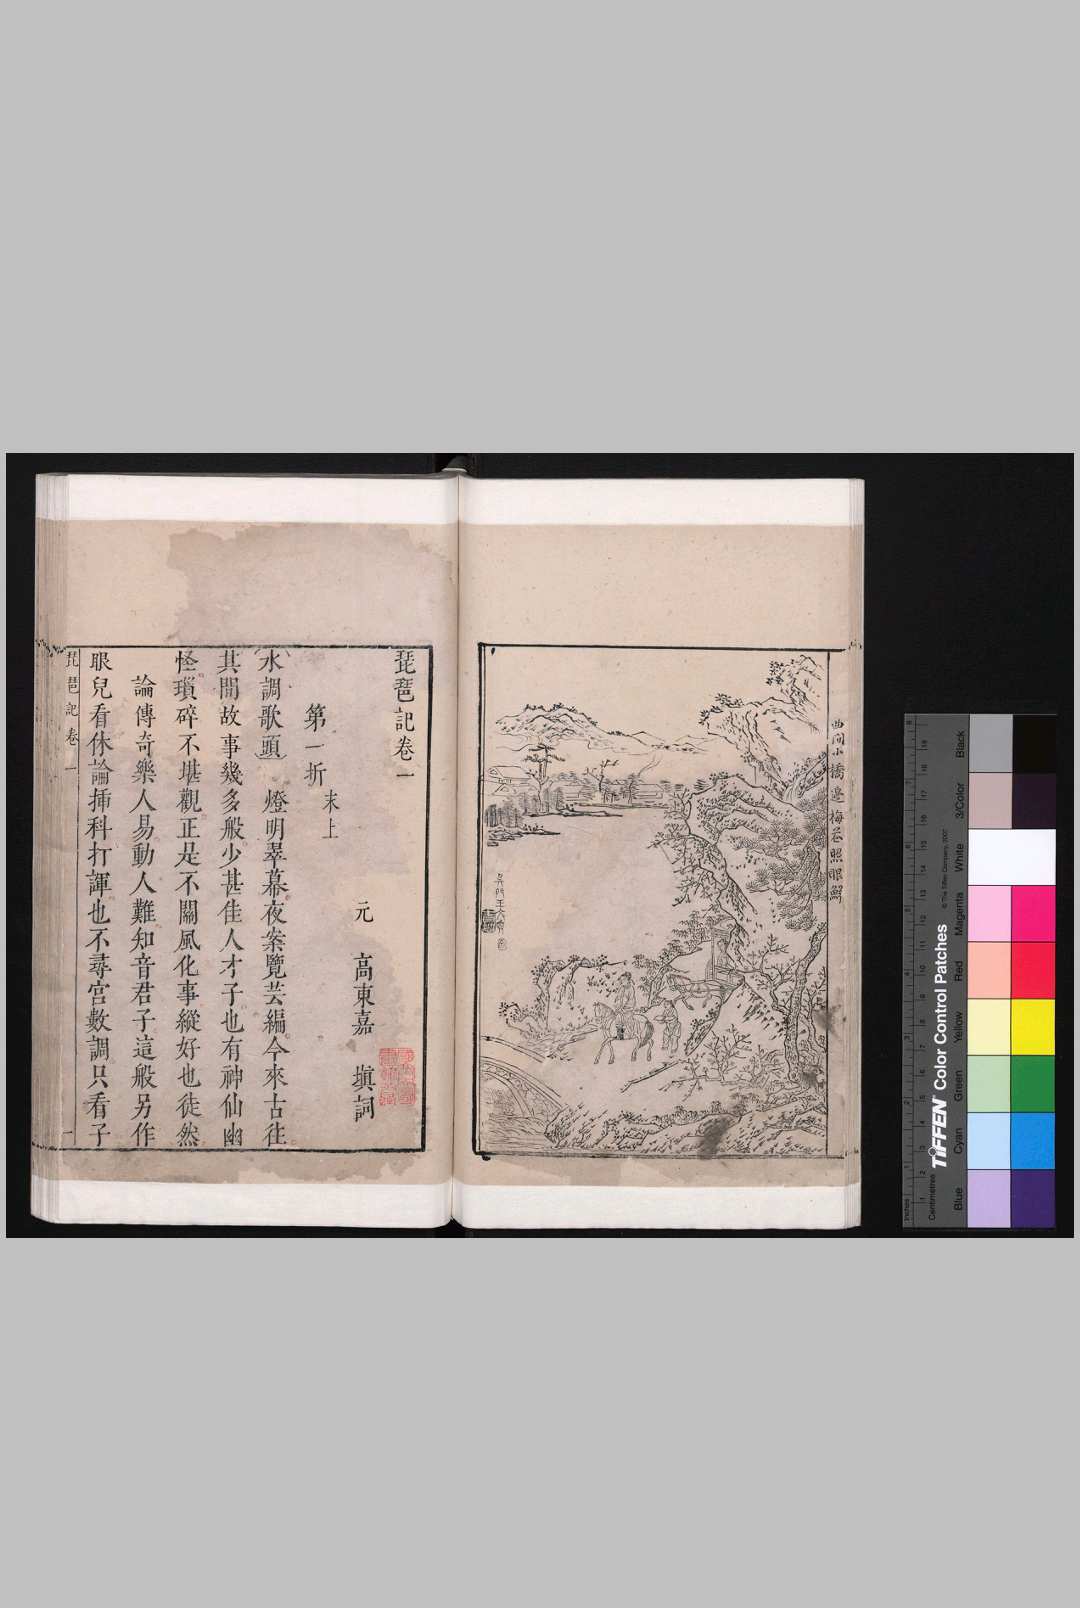 曲澗小橋邊梅花照眼鮮
吳門王文衡
琵琶記卷一
元 高東嘉 塡詞
第一折 末上
(水調歌頭) 燈明翠幕夜案覽芸編今來古往
其間故事幾多般少甚佳人才子也有神仙幽
怪瑣碎不堪觀正是不關風化事縱好也徒然
論傳奇樂人易動人難知音君子這般另作
眼兒看休論揷科打諢也不尋宮數調只看子
琵琶記卷一 一
TIFFEN Color Control Patches
© The Tiffen Company, 2007
Inches
Centimetres
Blue Cyan Green Yellow Red Magenta White 3/Color Black